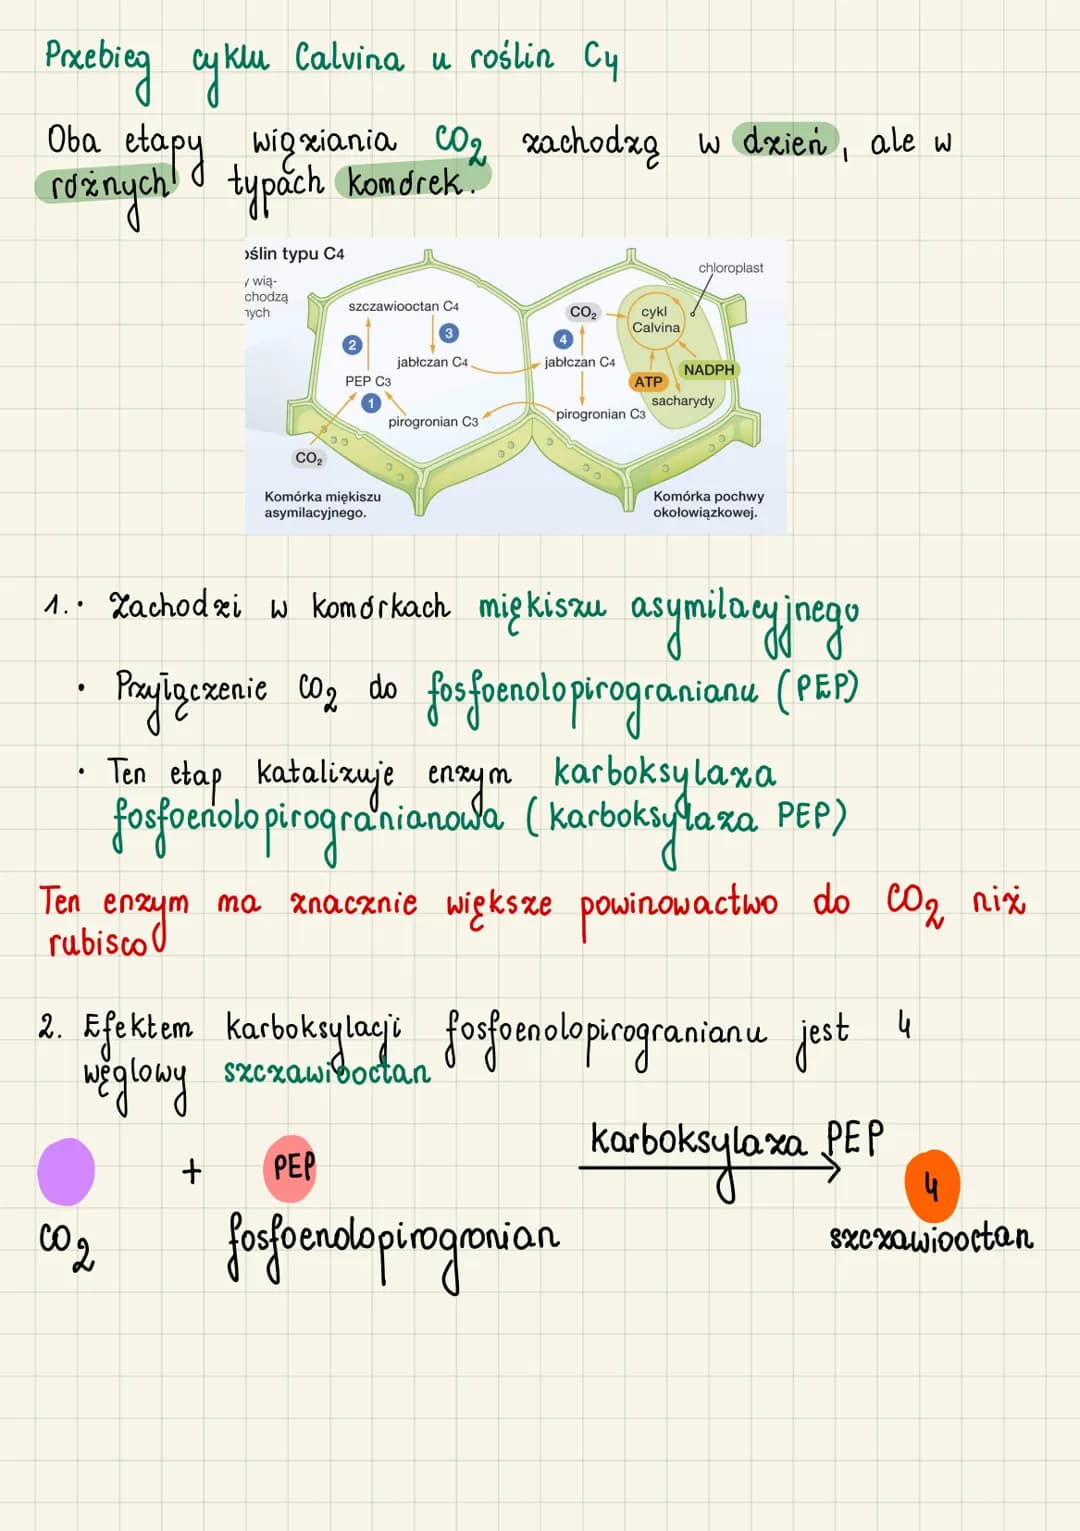 Przebieg cyklu Calvina u roślin C4
Oba etapy wiązania CO2 zachodzą w dzień, ale w
różnych typach komórek.
oślin typu C4
y wią-
chodzą
nych
chloroplast
szczawiooctan C4
CO2
cykl
Calvina
3
2
4
jabłczan C4
jabłczan C4
NADPH
PEP C3
ATP
1
sacharydy
pirogronian C3
pirogronian C3
CO2
Komórka miękiszu
asymilacyjnego.
Komórka pochwy
okołowiązkowej.
1. • Zachodzi w komórkach miękiszu asymilacyjjnego
• Przyłączenie CO2 do fosfoenolopirogranianu (PEP)
• Ten etap katalizuje enzym karboksylaza
fosfoenolopirogranianowa (karboksylaza PEP)
Ten enzym ma znacznie większe powinowactwo do CO2 niż
rubisco
2. Efektem karboksylacji fosfoenolopirogranianu jest 4
węglowy szczawiooctan
karboksylaza PEP
+ PEP
4
CO2 fosfoenolopirogronian szczawiooctan